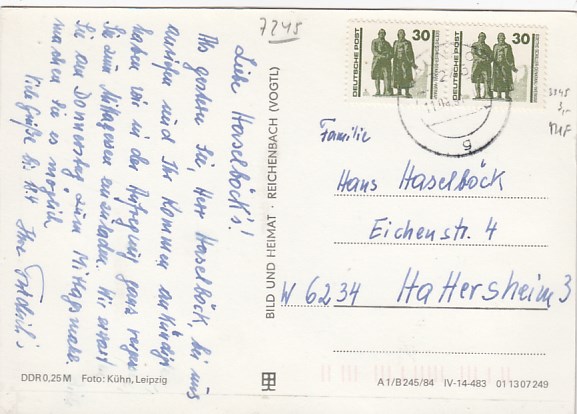 7245
Liebe Haselböck's!
Als gestern Sie, Herr Haselböck, bei uns
anriefen und Ihr Kommen ankündig-
haben wir in der Aufregung ganz verges
Sie zum Mittagessen einzuladen. Wir erwart
Sie am Donnerstag zum Mittagsmahl.
machen Sie es möglich
Viele Grüße bis
Ihre
DDR 0,25 M Foto: Kühn, Leipzig
BILD UND HEIMAT · REICHENBACH (VOGTL)
DEUTSCHE POST 30
DEUTSCHE POST 30
3345
MIF
Familie
Hans Haselböck
Eichenstr. 4
W 6234 Hattersheim 3
A 1/B 245/84 IV-14-483 01 13 07 249